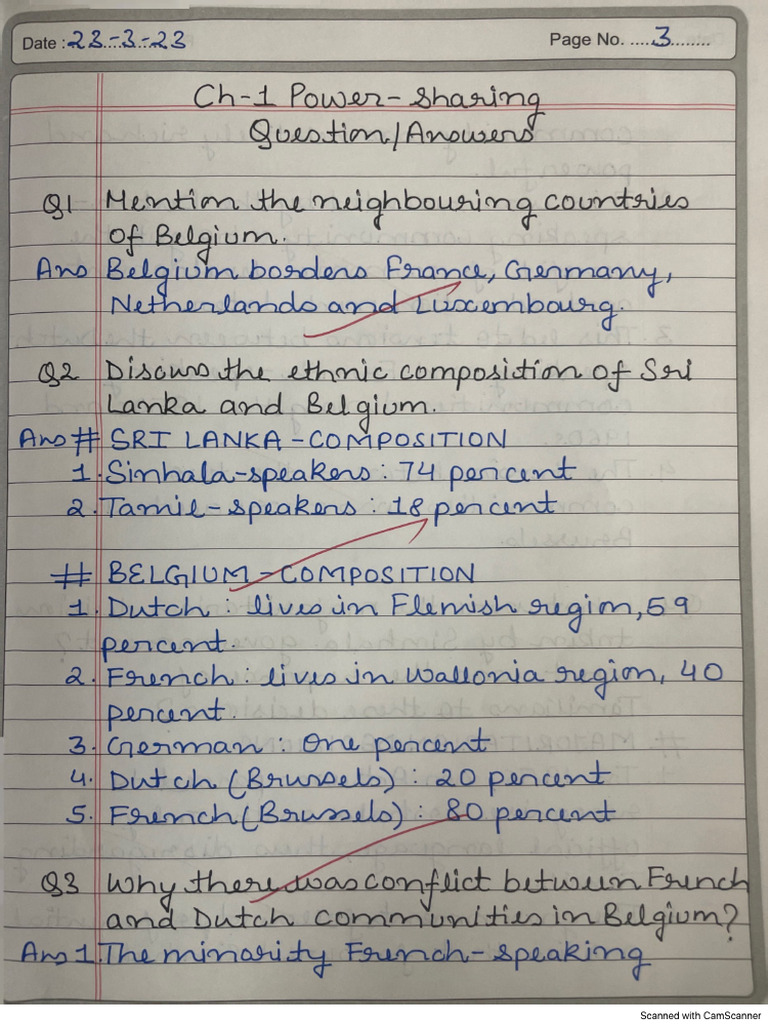 Date : 23-3-23 Page No. 3
Ch-1 Power-sharing
Question/Answers
Q1 Mention the neighbouring countries
of Belgium.
Ans Belgium borders France, Germany,
Netherlands and Luxembourg.
Q2 Discuss the ethnic composition of Sri
Lanka and Belgium.
Ans # SRI LANKA-COMPOSITION
1. Sinhala-speakers: 74 percent
2. Tamil-speakers : 18 percent
# BELGIUM-COMPOSITION
1. Dutch : lives in Flemish region, 59
percent.
2. French : lives in Wallonia region, 40
percent.
3. German : One percent
4. Dutch (Brussels) : 20 percent
5. French (Brussels) : 80 percent
Q3 Why there was conflict between French
and Dutch communities in Belgium?
Ans 1. The minority French-speaking
Scanned with CamScanner